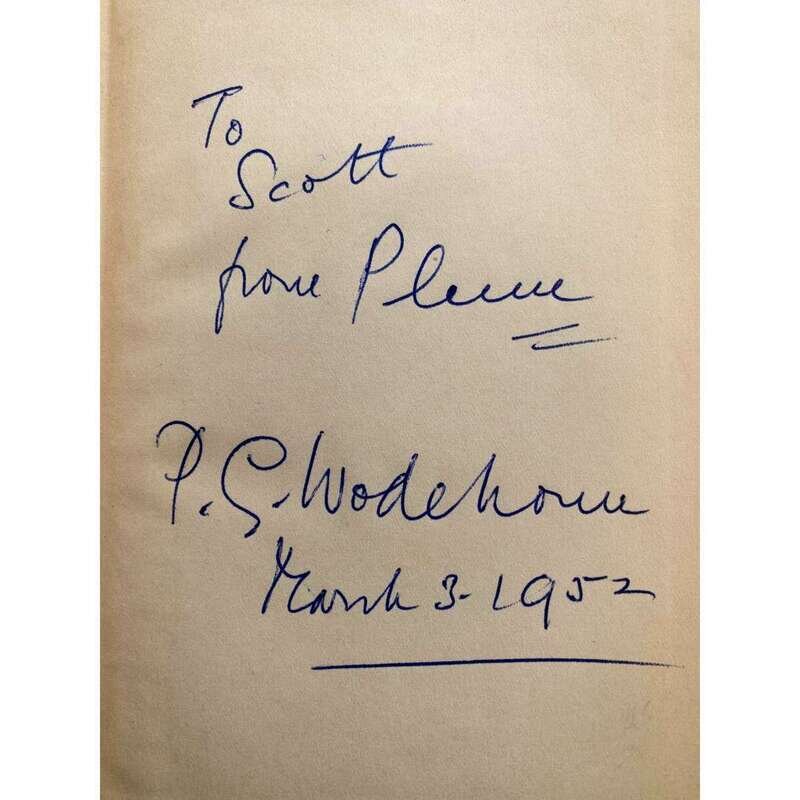 To
Scott
from Plum
P. G. Wodehouse
March 3. 1952